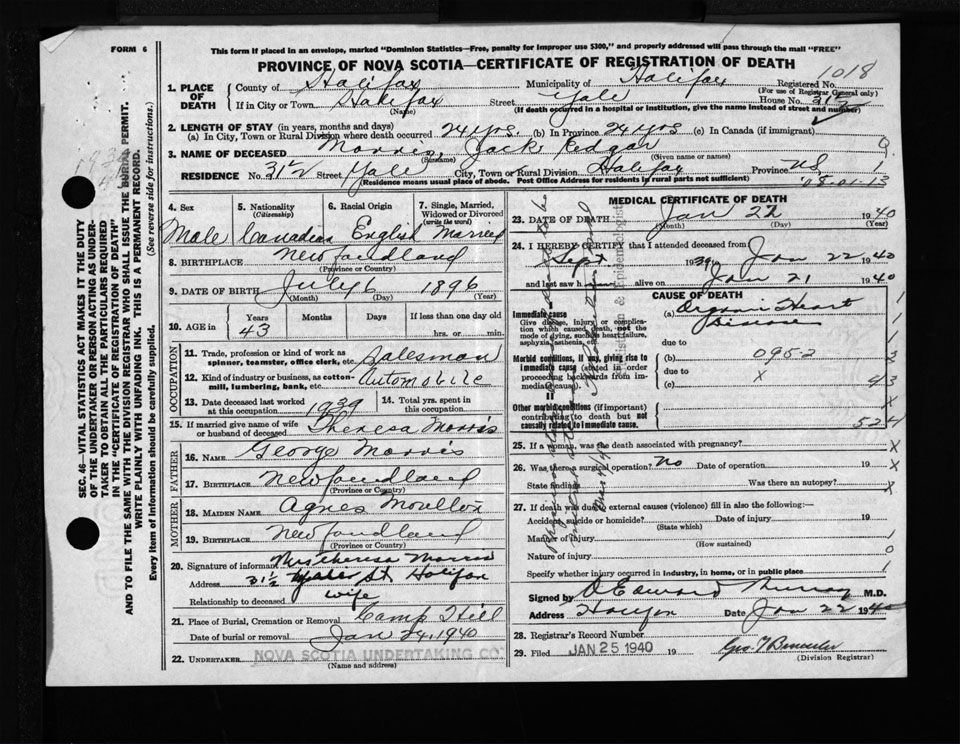 FORM 6
This form if placed in an envelope, marked "Dominion Statistics—Free, penalty for improper use $300," and properly addressed will pass through the mail "FREE"
PROVINCE OF NOVA SCOTIA—CERTIFICATE OF REGISTRATION OF DEATH
1018
1. PLACE OF DEATH
County of Halifax Municipality of Halifax Registered No.
(For use of Registrar General only)
If in City or Town Halifax Street Yale House No. 31½
(Name) (If death occurred in a hospital or institution, give the name instead of street and number)
2. LENGTH OF STAY (in years, months and days)
(a) In City, Town or Rural Division where death occurred 24 yrs. (b) In Province 24 yrs (c) In Canada (if immigrant)
3. NAME OF DECEASED Morris, Jack Edgar
(Surname) (Given name or names)
RESIDENCE No. 31½ Street Yale City, Town or Rural Division Halifax Province NS
(Residence means usual place of abode. Post Office Address for residents in rural parts not sufficient)
08-01-13
4. Sex Male
5. Nationality (Citizenship) Canadian
6. Racial Origin English
7. Single, Married, Widowed or Divorced (write the word) Married
8. BIRTHPLACE Newfoundland
(Province or Country)
9. DATE OF BIRTH July 6 1896
(Month) (Day) (Year)
10. AGE in Years 43 Months Days If less than one day old
hrs. or min.
OCCUPATION
11. Trade, profession or kind of work as spinner, teamster, office clerk, etc. Salesman
12. Kind of industry or business, as cotton-mill, lumbering, bank, etc. Automobile
13. Date deceased last worked at this occupation 1939
14. Total yrs. spent in this occupation
15. If married give name of wife or husband of deceased Theresa Morris
FATHER
16. NAME George Morris
17. BIRTHPLACE Newfoundland
(Province or Country)
MOTHER
18. MAIDEN NAME Agnes
19. BIRTHPLACE Newfoundland
(Province or Country)
20. Signature of informant Mrs Theresa Morris
Address 31½ Yale St Halifax
Relationship to deceased wife
21. Place of Burial, Cremation or Removal Camp Hill
Date of burial or removal Jan 24, 1940
22. UNDERTAKER NOVA SCOTIA UNDERTAKING CO
(Name and address)
MEDICAL CERTIFICATE OF DEATH
23. DATE OF DEATH Jan 22 1940
(Month) (Day) (Year)
24. I HEREBY CERTIFY that I attended deceased from
Sept 1939 to Jan 22 1940
and last saw h alive on Jan 21 1940
CAUSE OF DEATH
Immediate cause
Give disease, injury or complication which caused death, not the mode of dying, such as heart failure, asphyxia, asthenia, etc.
(a) Organic Heart Disease
due to
Morbid conditions, if any, giving rise to immediate cause (stated in order proceeding backwards from immediate cause).
(b) 095-2
due to
(c) X
II
Other morbid conditions (if important) contributing to death but not causally related to immediate cause.
25. If a woman, was the death associated with pregnancy?
26. Was there a surgical operation? No Date of operation 19
State findings Was there an autopsy?
27. If death was due to external causes (violence) fill in also the following:—
Accident, suicide or homicide? Date of injury 19
(State which)
Manner of injury
(How sustained)
Nature of injury
Specify whether injury occurred in industry, in home, or in public place
Signed by O Edward Murray M.D.
Address Halifax Date Jan 22 1940
28. Registrar's Record Number
29. Filed JAN 25 1940 19
(Division Registrar)
SEC. 46—VITAL STATISTICS ACT MAKES IT THE DUTY
OF THE UNDERTAKER OR PERSON ACTING AS UNDER-
TAKER TO OBTAIN ALL THE PARTICULARS REQUIRED
IN THE "CERTIFICATE OF REGISTRATION OF DEATH"
AND TO FILE THE SAME WITH THE DIVISION REGISTRAR WHO SHALL ISSUE THE BURIAL PERMIT.
WRITE PLAINLY WITH UNFADING INK. THIS IS A PERMANENT RECORD.
Every item of information should be carefully supplied. (See reverse side for instructions.)